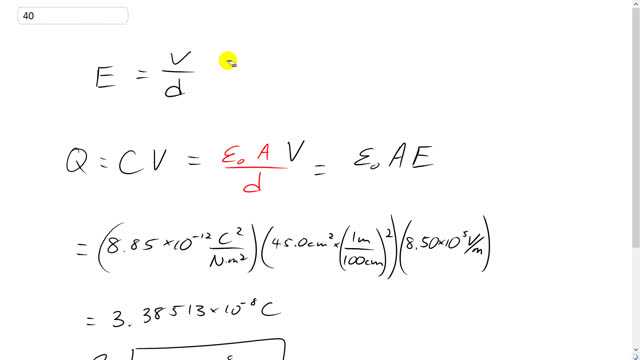 40
E = V/d
Q = CV = ε₀ A/d V = ε₀ A E
= (8.85×10⁻¹² C²/N·m²)(45.0cm² × (1m/100cm)²)(8.50×10⁵ V/m)
= 3.38513×10⁻⁸ C